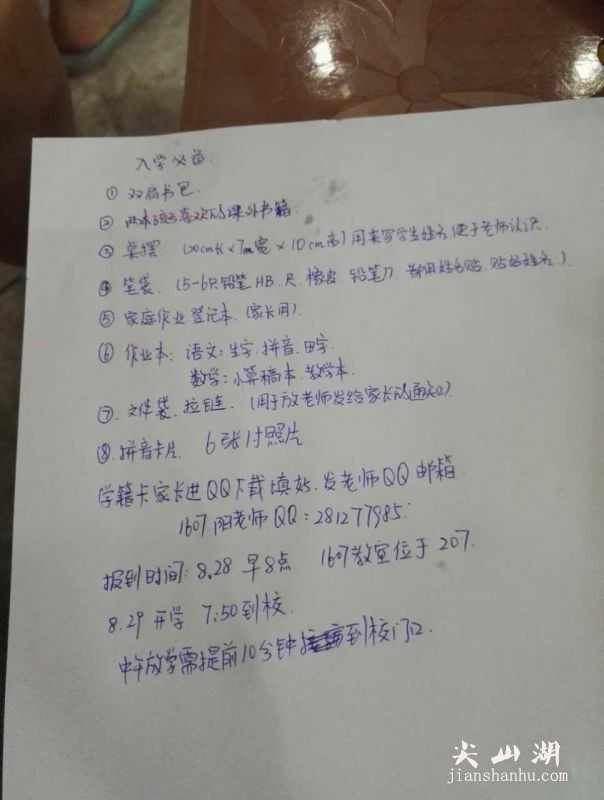 入学必备.
① 双肩书包.
② 两本孩子喜欢的课外书籍.
③ 桌摆 (20cm长×7cm宽×10cm高) 用来写学生姓名,便于老师认识.
④ 笔袋. (5-6只铅笔HB.尺.橡皮.铅笔刀.都用姓名贴.贴好姓名.)
⑤ 家庭作业登记本. (家长用).
⑥ 作业本: 语文:生字.拼音.田字.
数学:小算稿本.数学本.
⑦. 文件袋.拉链. (用于放老师发给家长的通知)
⑧. 拼音卡片. 6张1寸照片
学籍卡家长进QQ下载填好.发老师QQ邮箱.
1607阳老师QQ:281277985.
报到时间: 8.28 早8点 1607教室位于207.
8.29 开学 7:50到校.
中午放学需提前10分钟到校门口.
尖山湖
jianshanhu.com